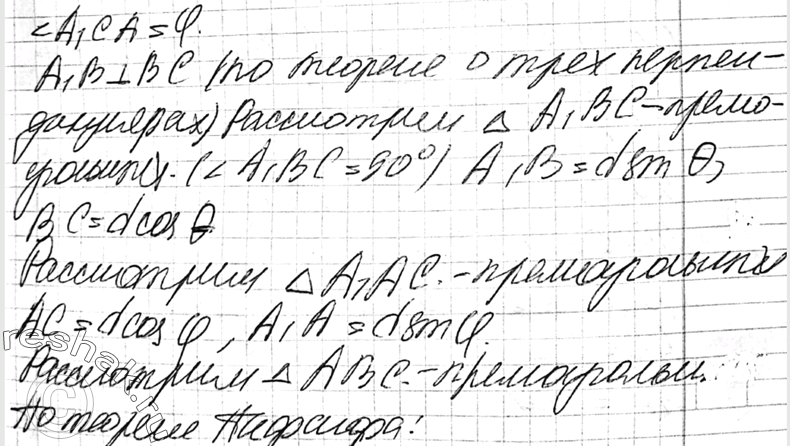 <A₁CA=φ.
A₁B⊥BC (по теореме о трех перпен-
дикулярах) Рассмотрим △ A₁BC-прямо-
угольный. (<A₁BC=90°) A₁B=dsinθ,
BC=dcosθ
Рассмотрим △A₁AC.-прямоугольный
AC=dcosφ, A₁A=dsinφ.
Рассмотрим △ABC.-прямоугольн.
По теореме Пифагора:
reshak.ru
©